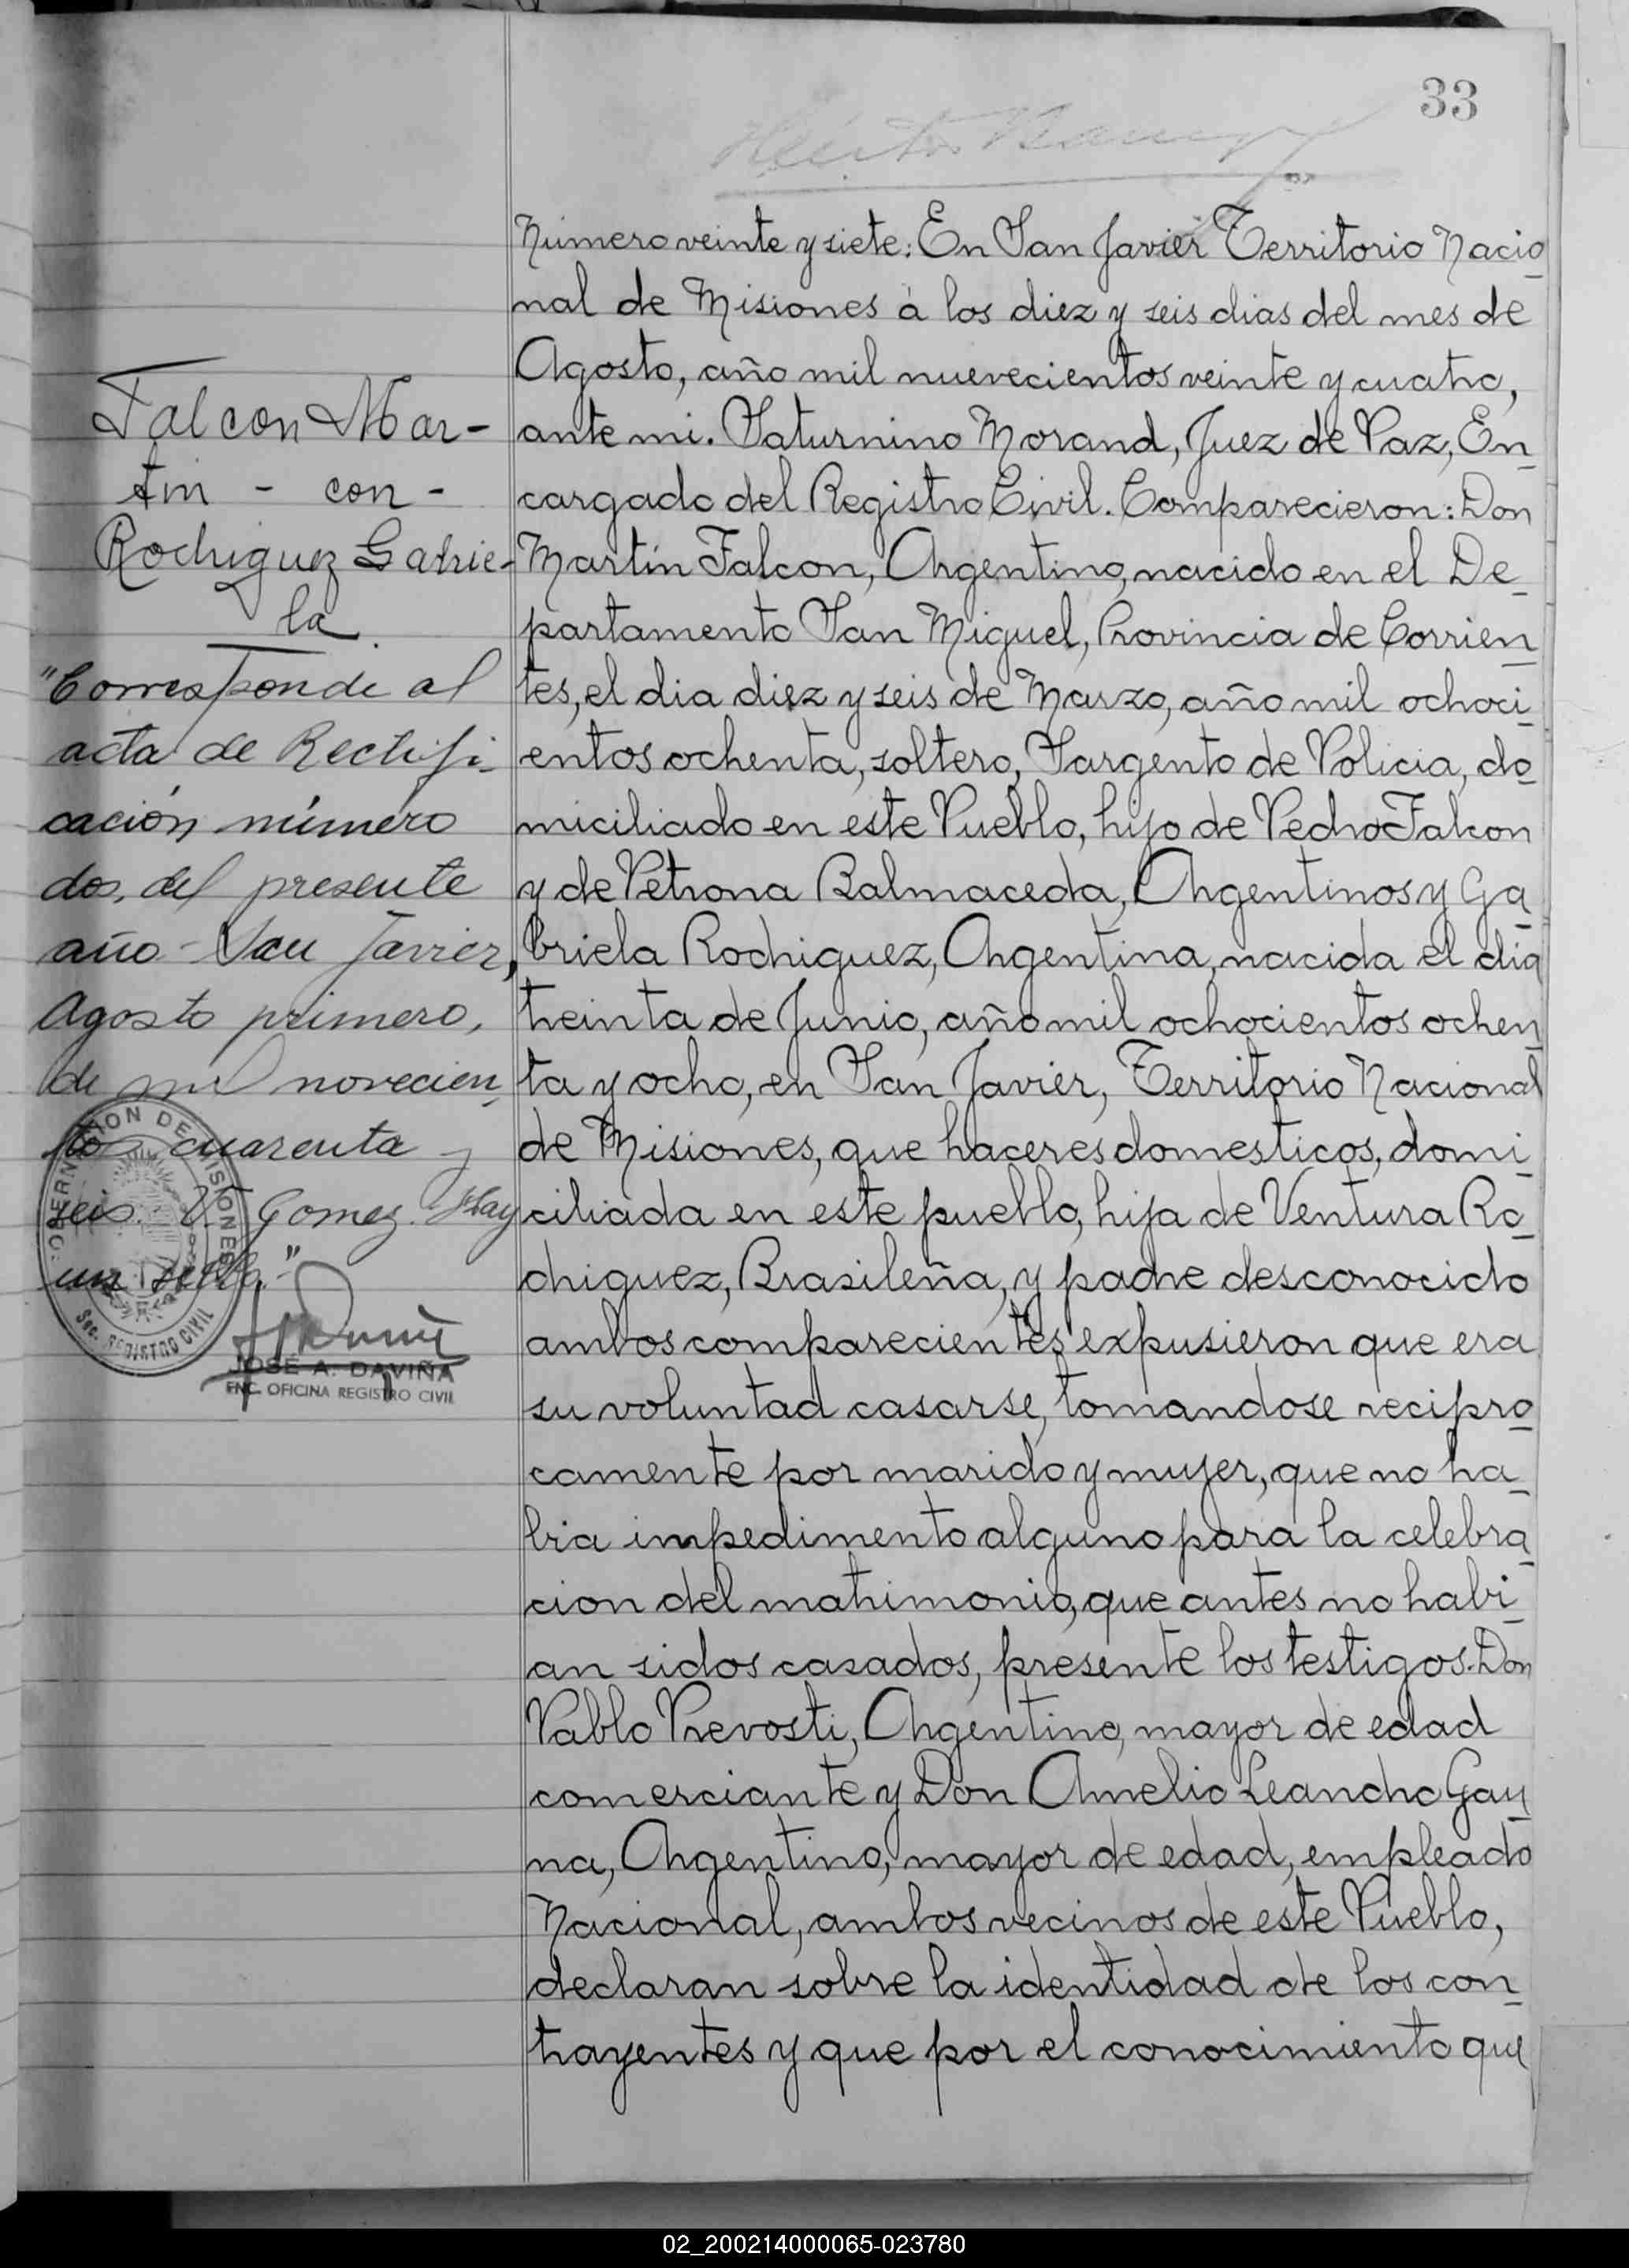 33
Número veinte y siete: En San Javier Territorio Nacio
nal de Misiones á los diez y seis dias del mes de
Agosto, año mil nuevecientos veinte y cuatro,
ante mi. Saturnino Morand, Juez de Paz, En
cargado del Registro Civil. Comparecieron: Don
Martín Falcon, Argentino, nacido en el De
partamento San Miguel, Provincia de Corrien
tes, el dia diez y seis de Marzo, año mil ochoci
entos ochenta, soltero, Sargento de Policia, do
miciliado en este Pueblo, hijo de Pedro Falcon
y de Petrona Balmaceda, Argentinos y Ga
briela Rodriguez, Argentina, nacida el dia
treinta de Junio, año mil ochocientos ochen
ta y ocho, en San Javier, Territorio Nacional
de Misiones, que haceres domesticos, domi
ciliada en este pueblo, hija de Ventura Ro
driguez, Brasileña, y padre desconocido
ambos comparecientes expusieron que era
su voluntad casarse, tomandose recipro
camente por marido y mujer, que no ha
bia impedimento alguno para la celebra
cion del matrimonio, que antes no habi
an sidos casados, presente los testigos. Don
Pablo Prevosti, Argentino, mayor de edad
comerciante y Don Amelio Leandro Gau
na, Argentino, mayor de edad, empleado
Nacional, ambos vecinos de este Pueblo,
declaran sobre la identidad de los con
trayentes y que por el conocimiento que
Falcon Mar-
tin - con -
Rodriguez Gabrie-
la
"Corresponde al
acta de Rectifi-
cación número
dos, del presente
año - San Javier,
Agosto primero,
de mil novecien
tos cuarenta y
seis. V. Gomez. Hay
un sello."
GOBERNACION DE MISIONES
Sec. REGISTRO CIVIL
JOSÉ A. DAVIÑA
ENC. OFICINA REGISTRO CIVIL
02_200214000065-023780